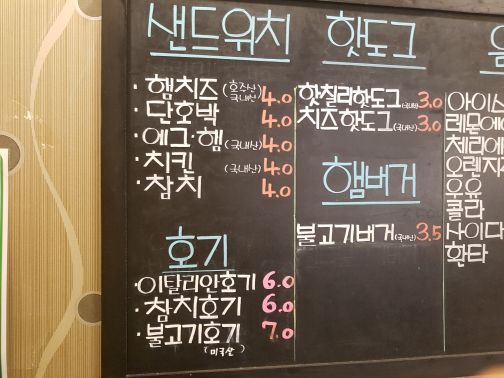 샌드위치
· 햄치즈 (호주산 국내산) 4.0
· 단호박 4.0
· 에그·햄 (국내산) 4.0
· 치킨 (국내산) 4.0
· 참치 4.0
호기
· 이탈리안호기 6.0
· 참치호기 6.0
· 불고기호기 7.0
(미국산)
핫도그
핫칠리핫도그 (국내산) 3.0
치즈핫도그 (국내산) 3.0
햄버거
불고기버거 (국내산) 3.5
음
아이스
레몬에
체리에
오렌지
우유
콜라
사이다
환타